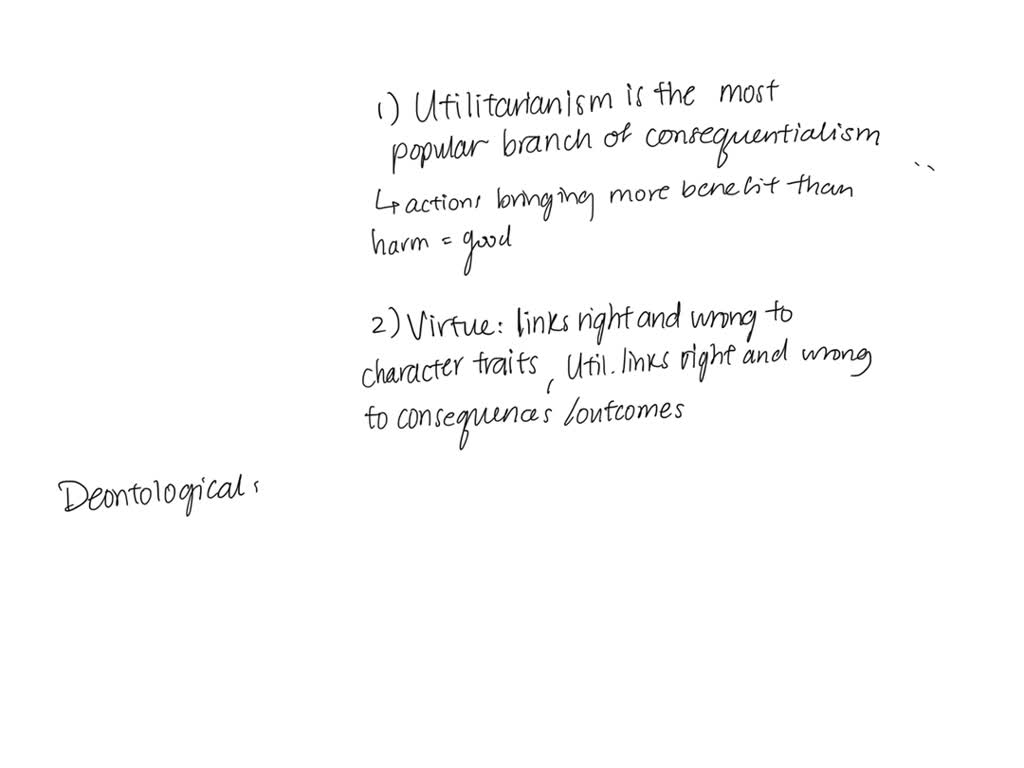 1) Utilitarianism is the most
popular branch of consequentialism
↳ actions bringing more benefit than
harm = good
2) Virtue: links right and wrong to
character traits, Util. links right and wrong
to consequences /outcomes
Deontological: